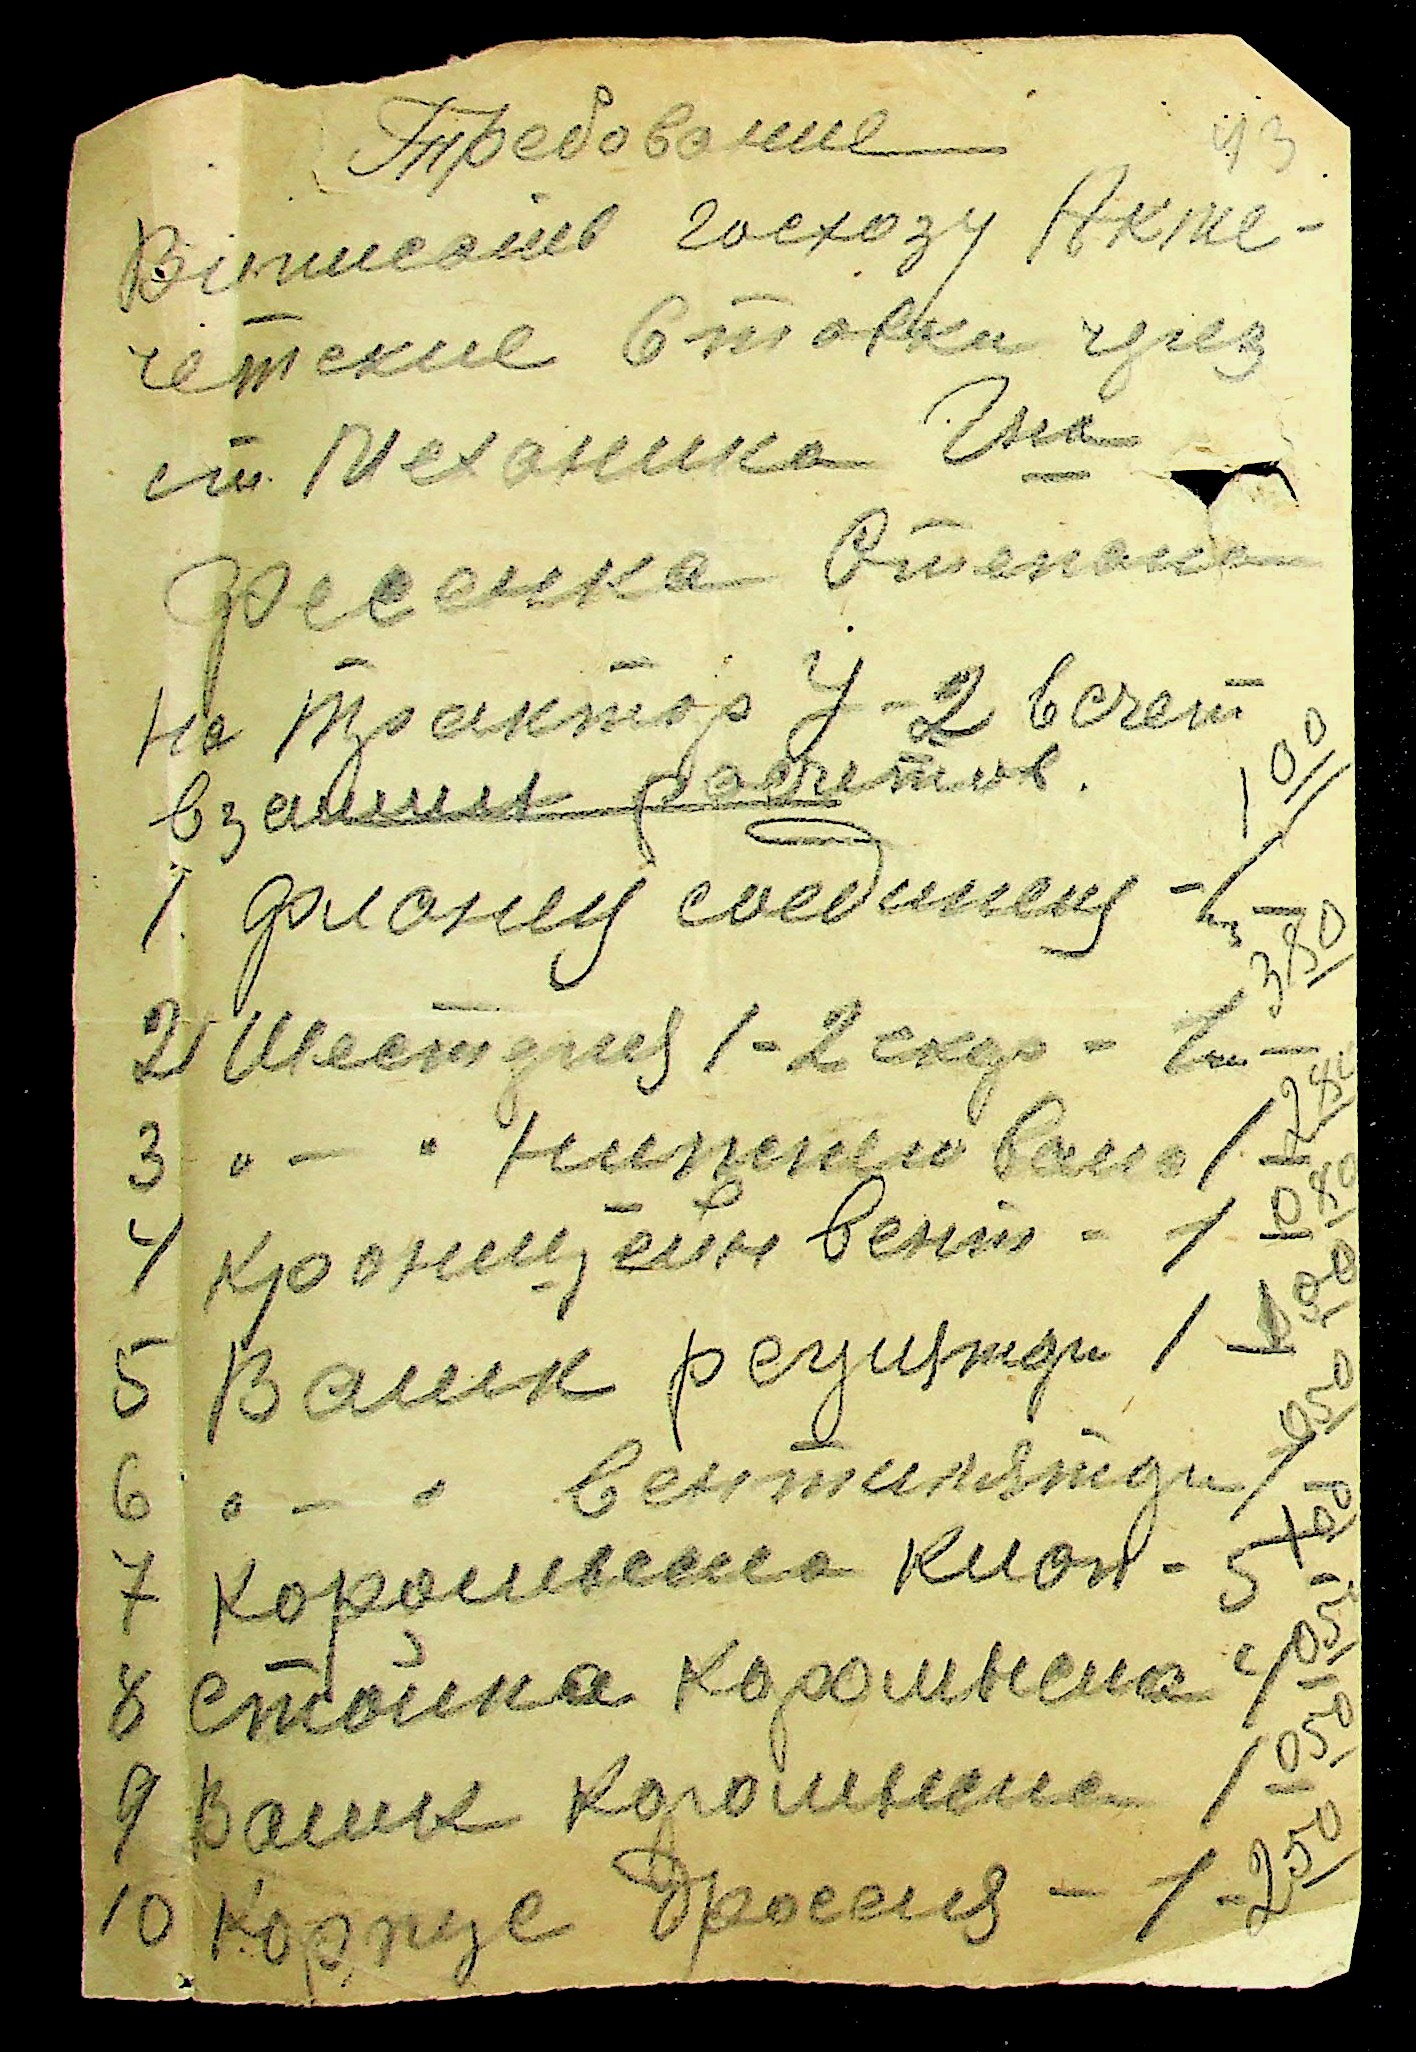 Требование
43
Выписать госхозу Акте-
четские вставки чрез
ст. Механика Гна
Степана
на трактор У-2 в счет
взаимн расчетов.
1 фланец соединен - 1 - 1 00
2 Шестдрня 1-2 скор - 1 - 3 80
3 " — " 1 - 2 8
4 кронштейн вент - 1 - 0 80
5 Валик регулятдр 1 - 1 00
6 " — " вентилятдр 1 - 0 50
7 коромысена клап - 5
8 стойка коромысена 4 - 0 5
9 Валик Коромысена 1 - 0 50
10 Корпус Дроселя - 1 - 2 50